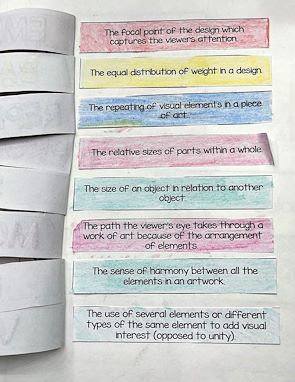 The focal point of the design which
captures the viewers attention.
The equal distribution of weight in a design.
The repeating of visual elements in a piece
of art.
The relative sizes of parts within a whole.
The size of an object in relation to another
object.
The path the viewer's eye takes through a
work of art because of the arrangement
of elements.
The sense of harmony between all the
elements in an artwork.
The use of several elements or different
types of the same element to add visual
interest (opposed to unity).